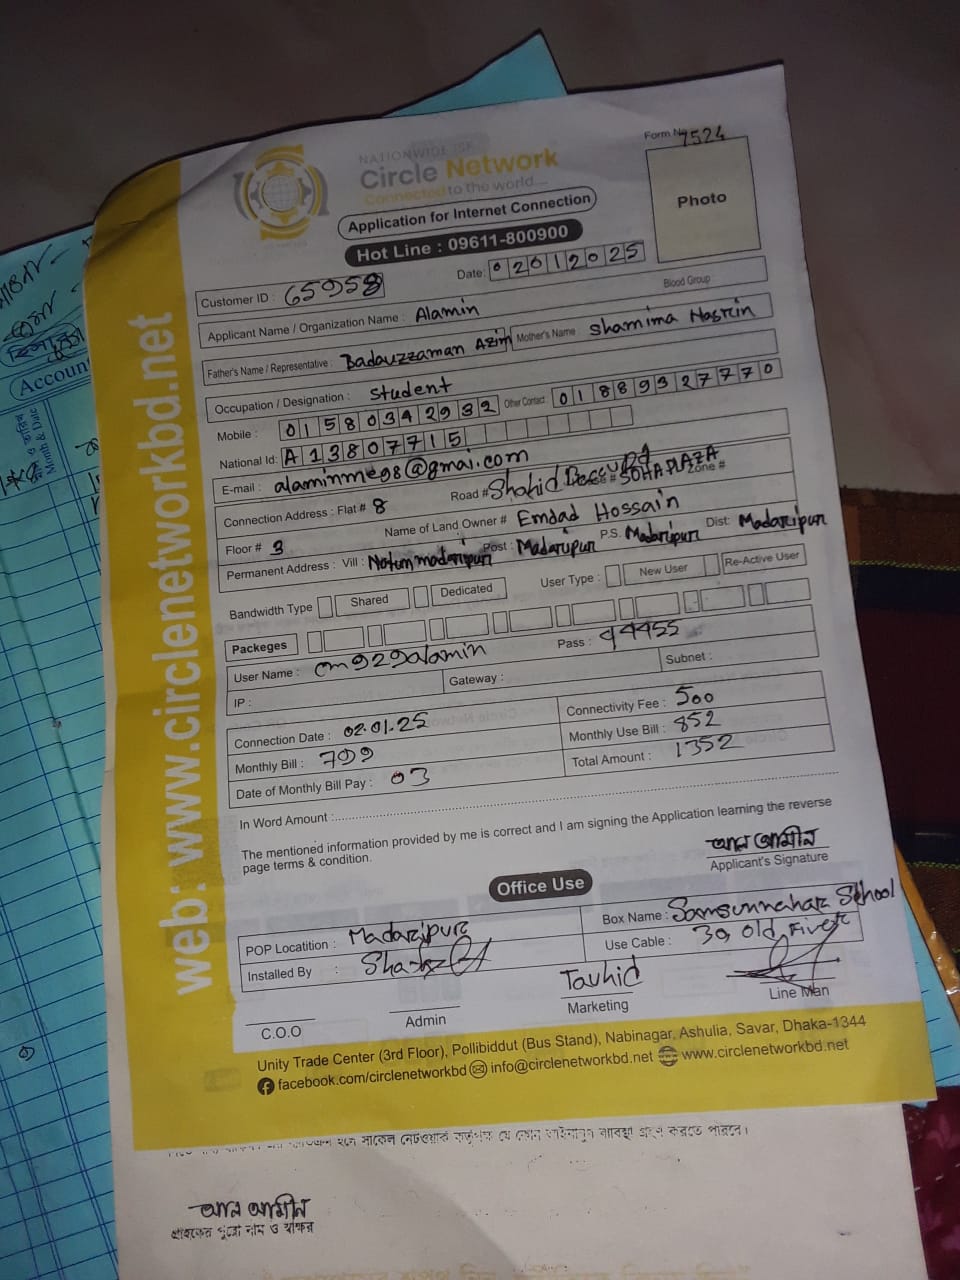 Form No 7524
NATIONWIDE ISP
Circle Network
Connected to the world....
Photo
Application for Internet Connection
Hot Line : 09611-800900
Customer ID : 65958
Date: 02012025
Applicant Name / Organization Name : Alamin
Blood Group
Father's Name / Representative : Badauzzaman Azim Mother's Name Shamima Nasrin
Occupation / Designation : Student
Mobile : 01580342932 Other Contact 01889327770
National Id: A13807715
E-mail : alaminmeg8@gmai.com
Connection Address : Flat # 8 Road # Shohid SOHA PLAZA Zone #
Floor # 3 Name of Land Owner # Emdad Hossain
Permanent Address : Vill : Notun madaripur Post : Madaripur P.S. Madaripur Dist: Madaripur
Bandwidth Type Shared Dedicated User Type : New User Re-Active User
Packeges
User Name : cm929alamin Pass : 94455
IP : Gateway : Subnet :
Connection Date : 02.01.25 Connectivity Fee : 500
Monthly Bill : 799 Monthly Use Bill : 852
Date of Monthly Bill Pay : 03 Total Amount : 1352
In Word Amount :
The mentioned information provided by me is correct and I am signing the Application learning the reverse
page terms & condition.
আল আমীন
Applicant's Signature
Office Use
POP Locatition : Madaripur Box Name : Samsunnahar School
Installed By : Use Cable : 30 old Fiver
Tauhid
C.O.O Admin Marketing Line Man
Unity Trade Center (3rd Floor), Pollibiddut (Bus Stand), Nabinagar, Ashulia, Savar, Dhaka-1344
facebook.com/circlenetworkbd info@circlenetworkbd.net www.circlenetworkbd.net
web: www.circlenetworkbd.net
আল আমীন
গ্রাহকের পুরো নাম ও স্বাক্ষর
Accoun
তারিখ
Month & Date